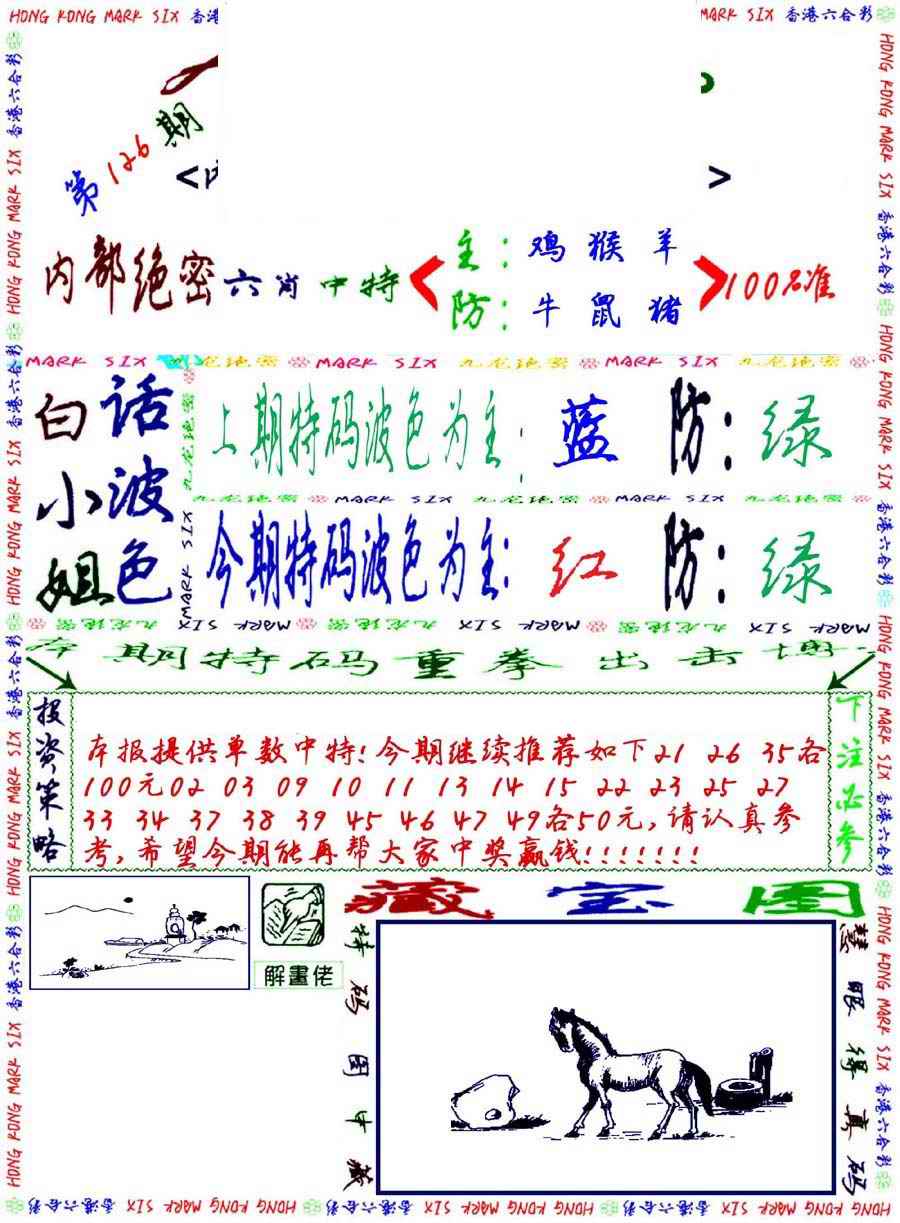 HONG KONG MARK SIX 香港
MARK SIX 香港六合彩
第126期
< >
内部绝密六肖中特
主：鸡猴羊
防：牛鼠猪
100%准
MARK SIX 九龙地密 MARK SIX 九龙地密 MARK SIX 九龙地密
白话
小波
姐色
上期特码波色为主：蓝 防：绿
九龙地密 MARK SIX 九龙地密 MARK SIX 九龙地密
今期特码波色为主：红 防：绿
九龙地密 MARK SIX 九龙地密 MARK SIX 九龙地密 MARK SIX
本期特码重拳出击
投资策略
本报提供单数中特！今期继续推荐如下21 26 35各
100元02 03 09 10 11 13 14 15 22 23 25 27
33 34 37 38 39 45 46 47 49各50元，请认真参
考，希望今期能再帮大家中奖赢钱！！！！！！！
下注必参
解畫佬
藏宝图
特码图中藏
慧眼得真码
HONG KONG MARK SIX 香港六合彩